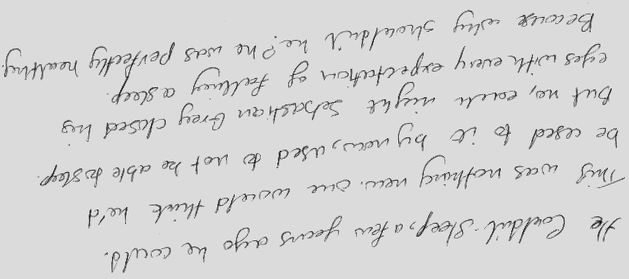 He Couldn't Sleep, a few years ago he could.
This was nothing new. One would think he'd
be used to it by now, used to not be able to sleep.
But no, each night Sebastian Grey closed his
eyes with every expectation of falling asleep.
Because why shouldn't he? he was perfectly healthy.